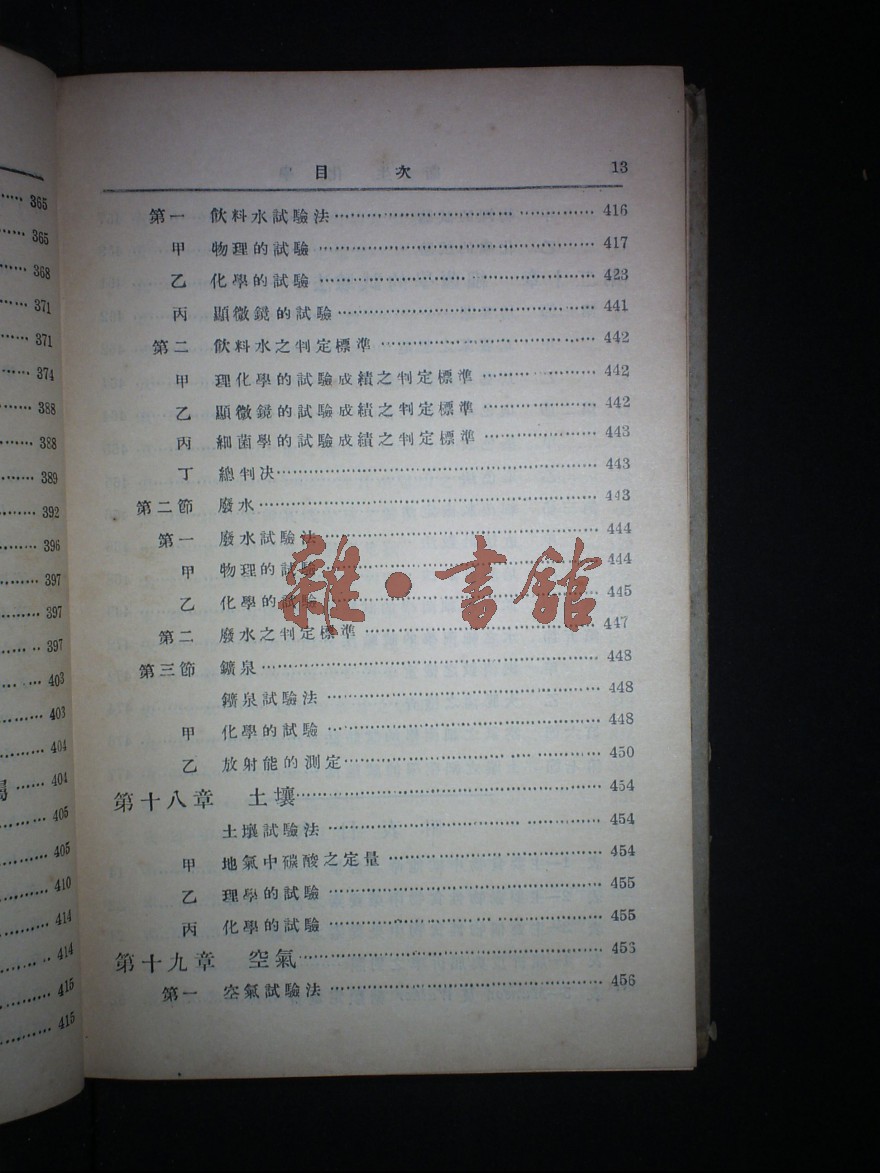 365
365
368
371
371
374
388
388
389
392
396
397
397
397
403
403
404
404
405
405
410
414
414
415
415
目次 13
第一 飲料水試驗法 416
甲 物理的試驗 417
乙 化學的試驗 423
丙 顯微鏡的試驗 441
第二 飲料水之判定標準 442
甲 理化學的試驗成績之判定標準 442
乙 顯微鏡的試驗成績之判定標準 442
丙 細菌學的試驗成績之判定標準 443
丁 總判決 443
第二節 廢水 443
第一 廢水試驗法 444
甲 物理的試驗 444
乙 化學的試驗 445
第二 廢水之判定標準 447
第三節 鑛泉 448
鑛泉試驗法 448
甲 化學的試驗 448
乙 放射能的測定 450
第十八章 土壤 454
土壤試驗法 454
甲 地氣中碳酸之定量 454
乙 理學的試驗 455
丙 化學的試驗 455
第十九章 空氣 456
第一 空氣試驗法 456
雜·書館